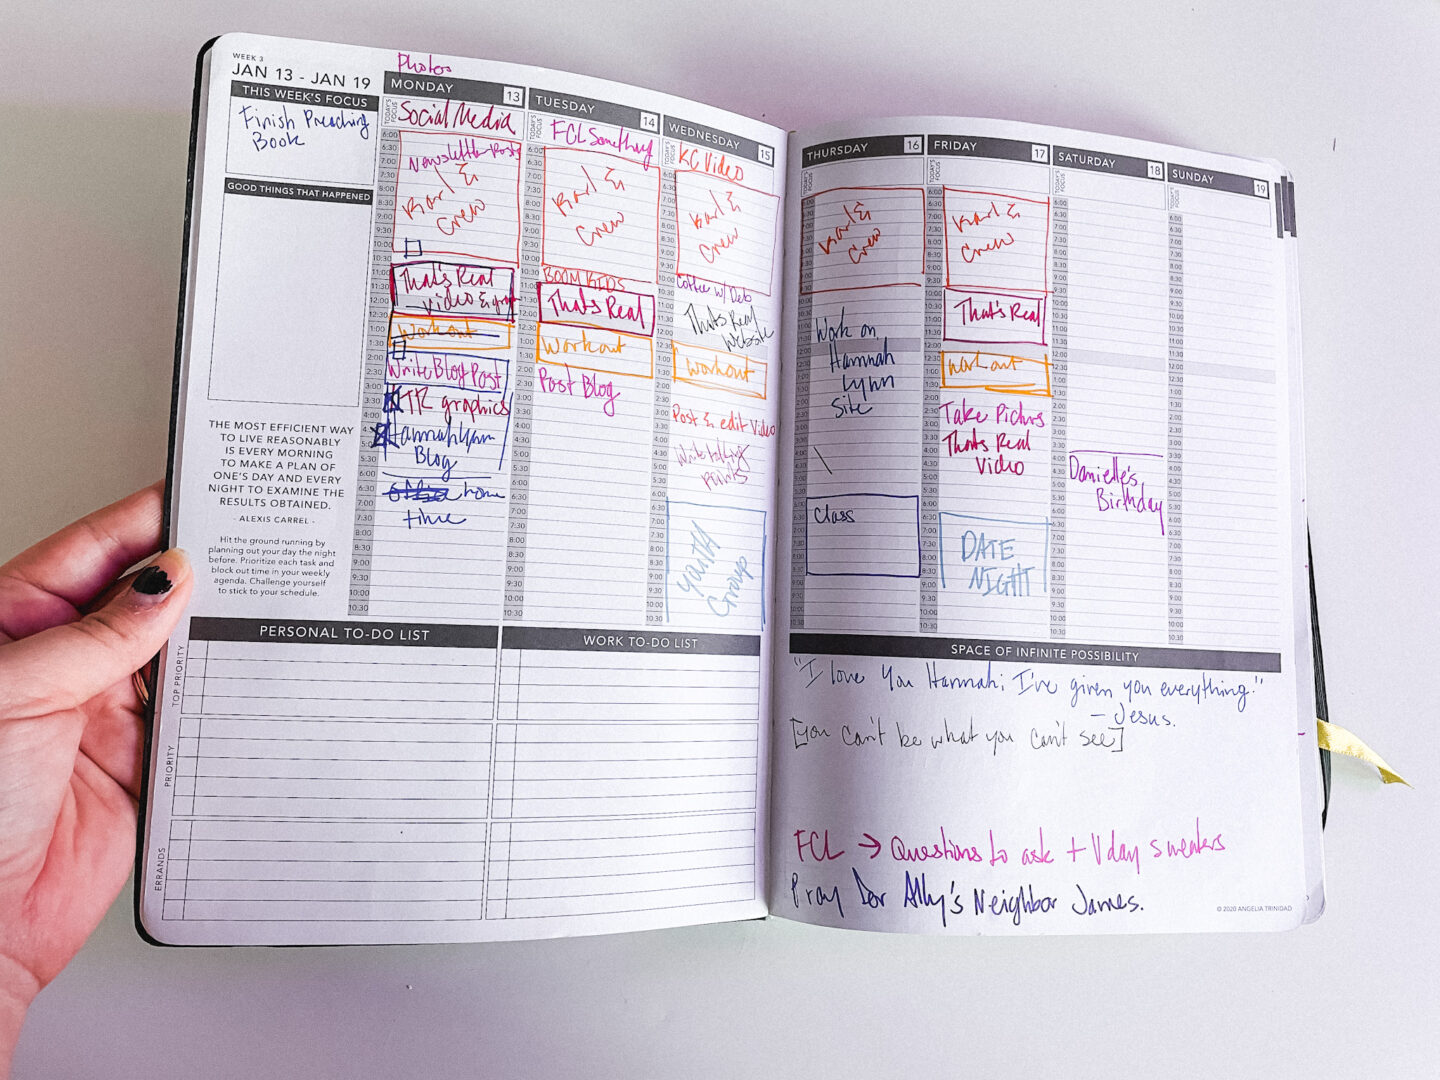 WEEK 3
JAN 13 - JAN 19
THIS WEEK'S FOCUS
Finish Preaching
Book
GOOD THINGS THAT HAPPENED
THE MOST EFFICIENT WAY
TO LIVE REASONABLY
IS EVERY MORNING
TO MAKE A PLAN OF
ONE'S DAY AND EVERY
NIGHT TO EXAMINE THE
RESULTS OBTAINED.
ALEXIS CARREL -
Hit the ground running by
planning out your day the night
before. Prioritize each task and
block out time in your weekly
agenda. Challenge yourself
to stick to your schedule.
Photos
MONDAY 13
TODAY'S FOCUS
Social Media
Newsletter Posts
Karl &
Crew
That's Real
Video & graph
Workout
Write Blog Post
TR graphics
Hannah Lynn
Blog
home
time
TUESDAY 14
TODAY'S FOCUS
FCL Something
Karl &
Crew
BOOM KIDS
That's Real
Workout
Post Blog
WEDNESDAY 15
TODAY'S FOCUS
KC Video
Karl &
Crew
Coffee w/ Deb
That's Real
Website
Workout
Post & edit Video
Write talking
points
Youth
Group
THURSDAY 16
TODAY'S FOCUS
Karl &
Crew
Work on
Hannah
Lynn
Site
Class
FRIDAY 17
TODAY'S FOCUS
Karl &
Crew
That's Real
Workout
Take Pictures
That's Real
Video
DATE
NIGHT
SATURDAY 18
TODAY'S FOCUS
Danielle's
Birthday
SUNDAY 19
TODAY'S FOCUS
PERSONAL TO-DO LIST
WORK TO-DO LIST
TOP PRIORITY
PRIORITY
ERRANDS
SPACE OF INFINITE POSSIBILITY
"I love You Hannah; I've given you everything!"
- Jesus.
[you can't be what you can't see]
FCL → Questions to ask + V day sweaters
Pray for Ally's Neighbor James.
© 2020 ANGELIA TRINIDAD